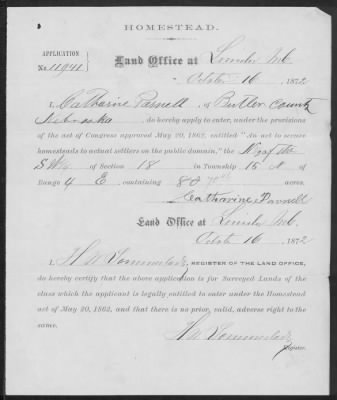 HOMESTEAD.
APPLICATION
No. 11941
Land Office at Lincoln Neb
October 16 1872
I, Catharine Parnell, of Butler County
Nebraska do hereby apply to enter, under the provisions
of the act of Congress approved May 20, 1862, entitled "An act to secure
homesteads to actual settlers on the public domain," the W½ of the
S W ¼ of Section 18 in Township 15 N of
Range 4 E, containing 80 acres.
Catharine Parnell
Land Office at Lincoln Neb
October 16 1872
I, H W, REGISTER OF THE LAND OFFICE,
do hereby certify that the above application is for Surveyed Lands of the
class which the applicant is legally entitled to enter under the Homestead
act of May 20, 1862, and that there is no prior, valid, adverse right to the
same.
H W
Register.